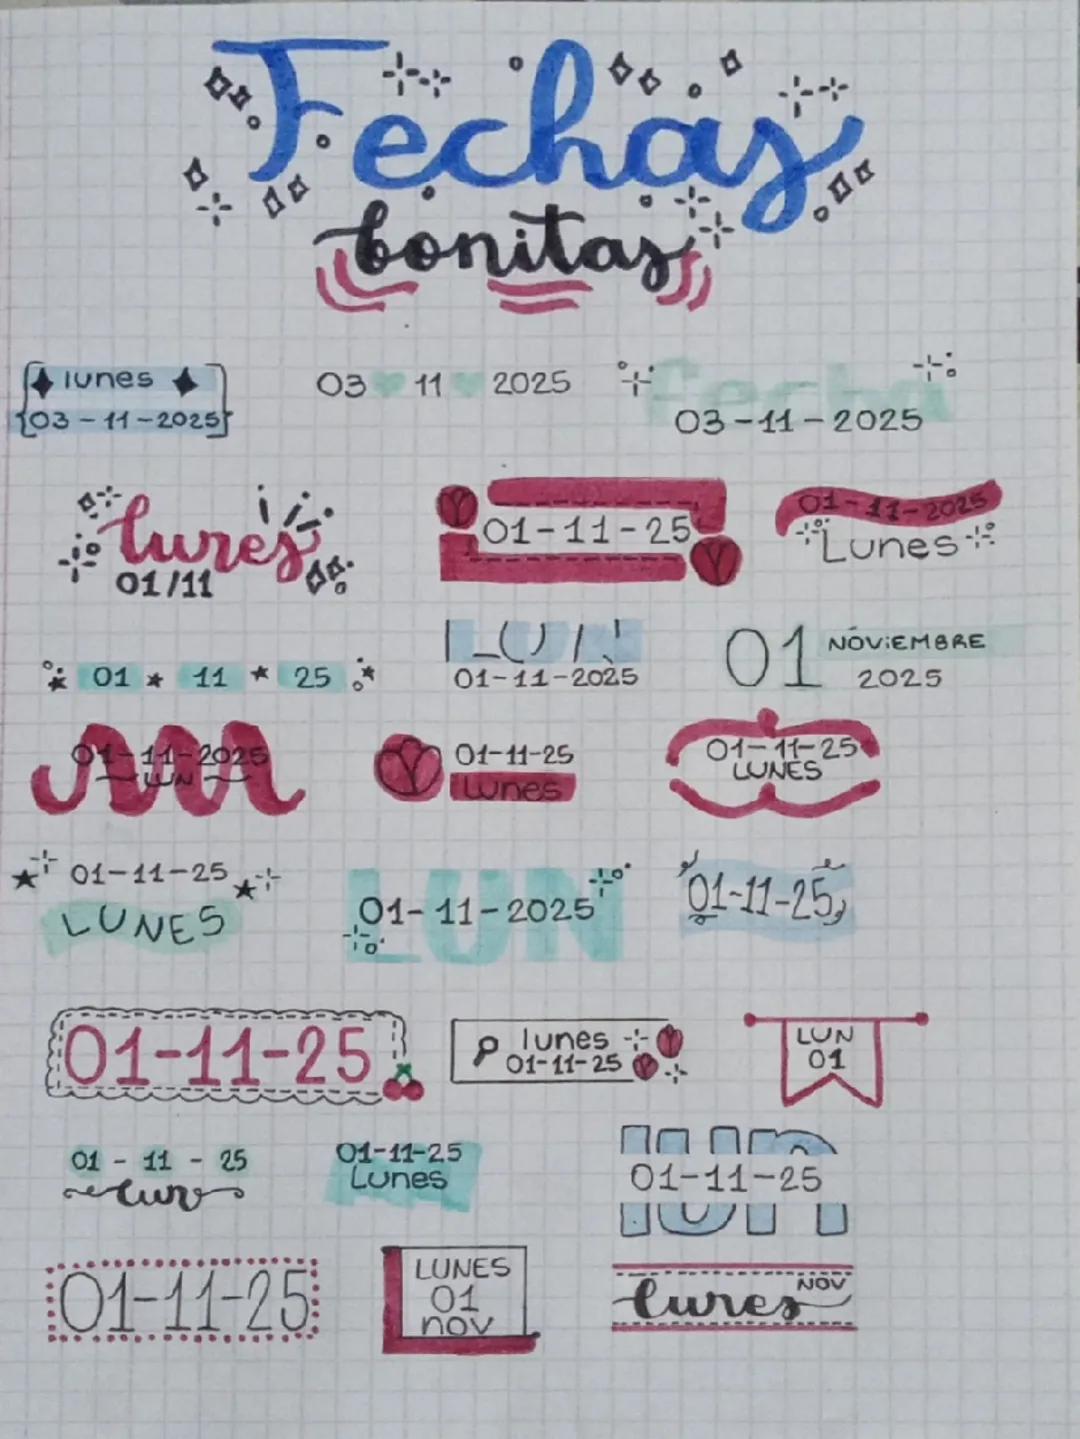 Fechas
bonitas
lunes
03-11-2025
03 11 2025
Fecha
03-11-2025
lunes
01/11
01-11-25
01-11-2025
Lunes
01 11 25
LUN
01-11-2025
01 NOViEMBRE
2025
01-11-2025
LUN
01-11-25
Lunes
01-11-25
LUNES
01-11-25
LUNES
LUN
01-11-2025
01-11-25
01-11-25
lunes
01-11-25
LUN
01
01 - 11 - 25
Lun
01-11-25
Lunes
lun
01-11-25
01-11-25
LUNES
01
nov
lunes NOV